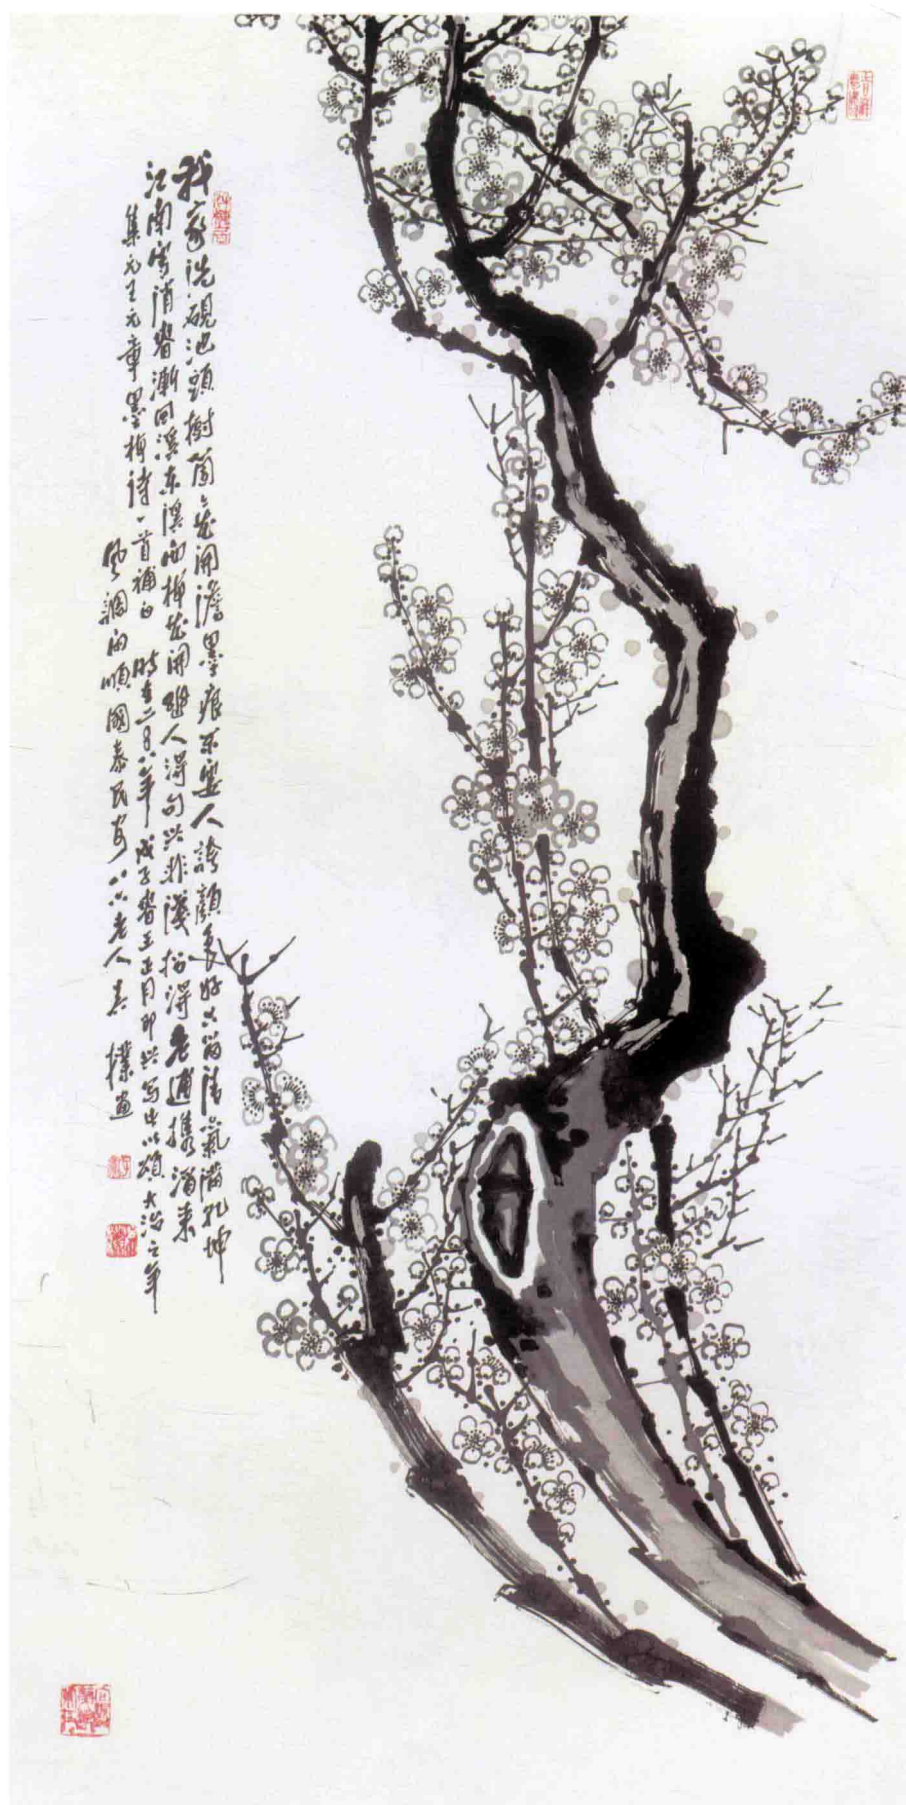 我家洗硯池頭樹箇〻花開澹墨痕不要人誇顏色好只留清氣滿乾坤
江南雪消春漸回溪東溪西梅花開人得句興非淺恰得老逋攜酒來
集元王元章墨梅詩一首補白 時在二〇〇八年戊子春王正月即興寫此以頌大治之年
風調雨順國泰民安八六老人樸畫